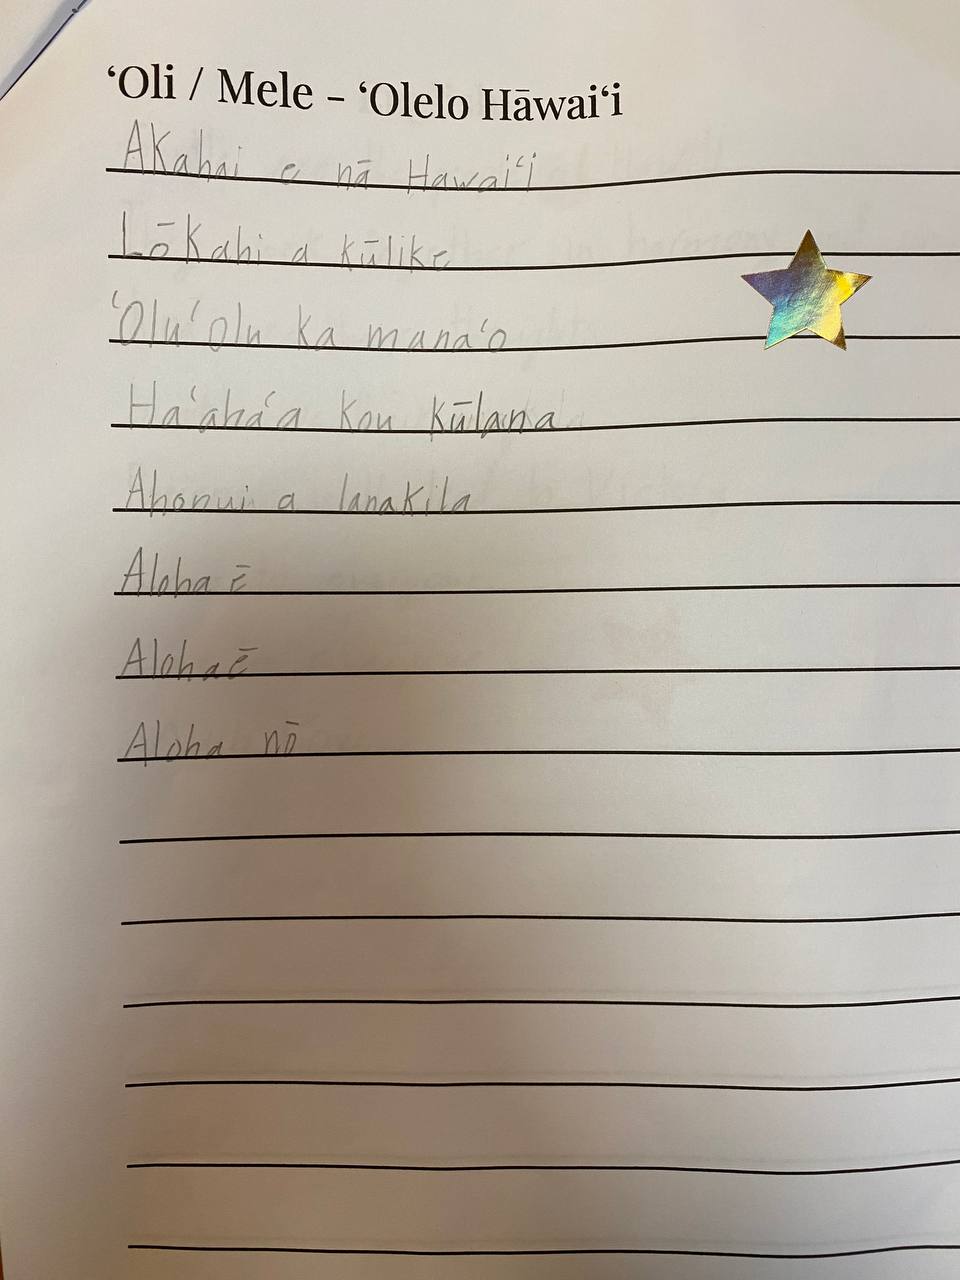 ʻOli / Mele – ʻOlelo Hāwaiʻi
AKahai e nā Hawaiʻi
LōKahi a kūlike
ʻOluʻolu ka manaʻo
Haʻahaʻa kou kūlana
Ahonui a lanakila
Aloha ē
Aloha ē
Aloha nō